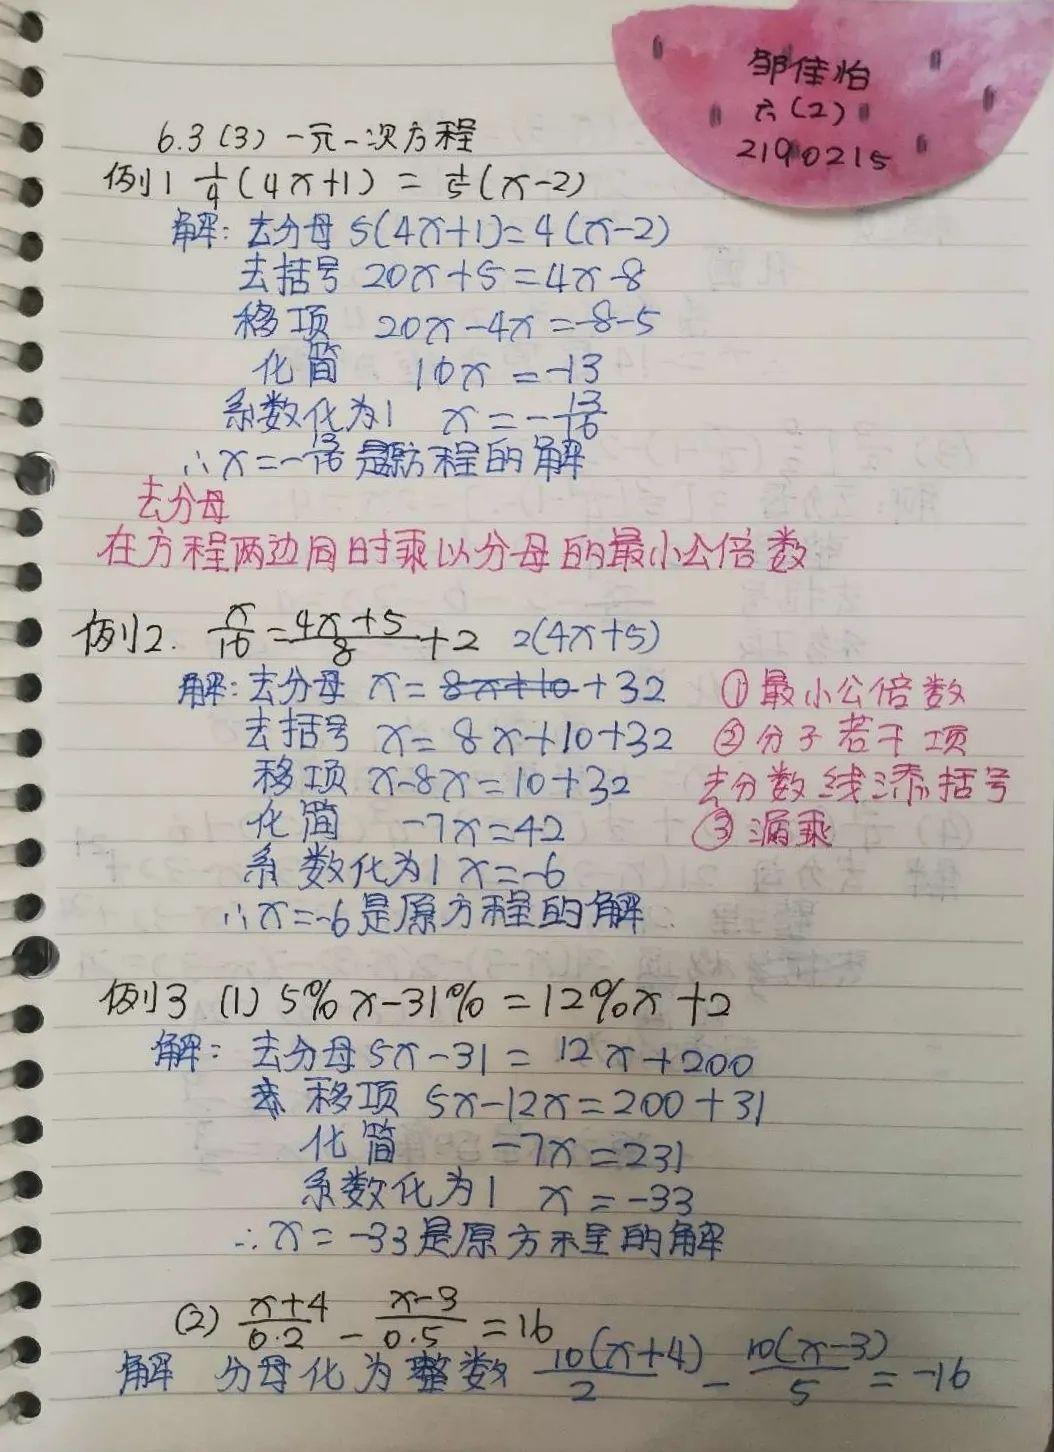 邹佳怡
六(2)
2190215
6.3(3) 一元一次方程
例1 1/4(4x+1) = 1/5(x-2)
解: 去分母 5(4x+1)=4(x-2)
去括号 20x+5=4x-8
移项 20x-4x=-8-5
化简 16x=-13
系数化为1 x=-13/16
∴x=-13/16是原方程的解
去分母
在方程两边同时乘以分母的最小公倍数
例2. x/16=(4x+5)/8+2 2(4x+5)
解: 去分母 x=8x+10+32 ①最小公倍数
去括号 x=8x+10+32 ②分子若干项
移项 x-8x=10+32 去分数线添括号
化简 -7x=42 ③漏乘
系数化为1 x=-6
∴x=-6是原方程的解
例3 (1) 5%x-31%=12%x+2
解: 去分母 5x-31=12x+200
移项 5x-12x=200+31
化简 -7x=231
系数化为1 x=-33
∴x=-33是原方程的解
(2) (x+4)/0.2-(x-3)/0.5=16
解 分母化为整数 10(x+4)/2-10(x-3)/5=-16